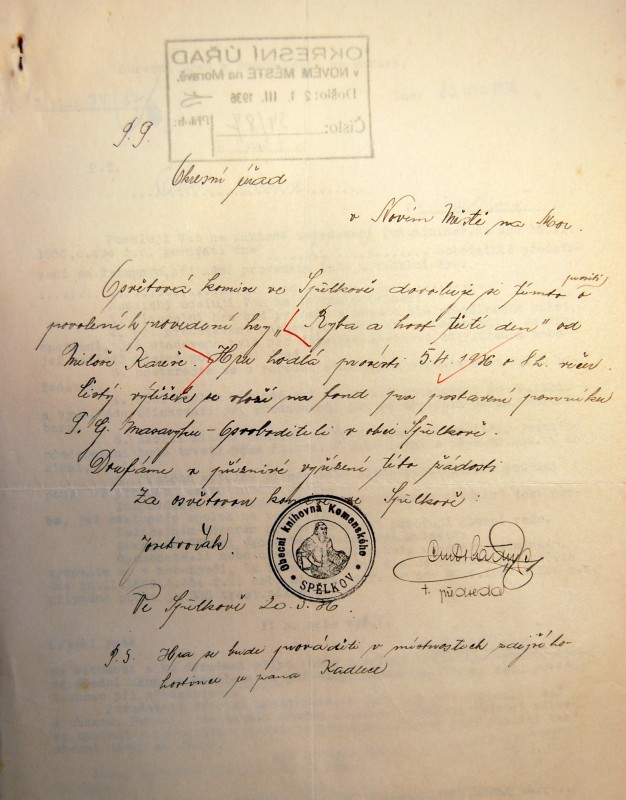 OKRESNÍ ÚŘAD
v NOVÉM MĚSTĚ na Moravě.
Došlo: 2 1. III. 1936
Číslo: Příloh:
P. T.
Okresní úřad
v Novém Městě na Mor.
prositi
Osvětová komise ve Spělkově dovoluje si tímto o
povolení k provedení hry „Ryba a host třetí den" od
Miloše Kareše. Hru hodlá provésti 5.4. 1936 o 8 h. večer.
Čistý výtěžek se vloží na fond pro postavení pomníku
T. G. Masaryku-Osvoboditeli v obci Spělkově.
Doufáme v příznivé vyřízení této žádosti
Za osvětovou komisi ve Spělkově:
Obecní knihovna Komenského
SPĚLKOV
t. předseda
Ve Spělkově 20.3.36.
P.S. Hra se bude prováděti v místnostech zdejšího
hostince p. pana Kadlece